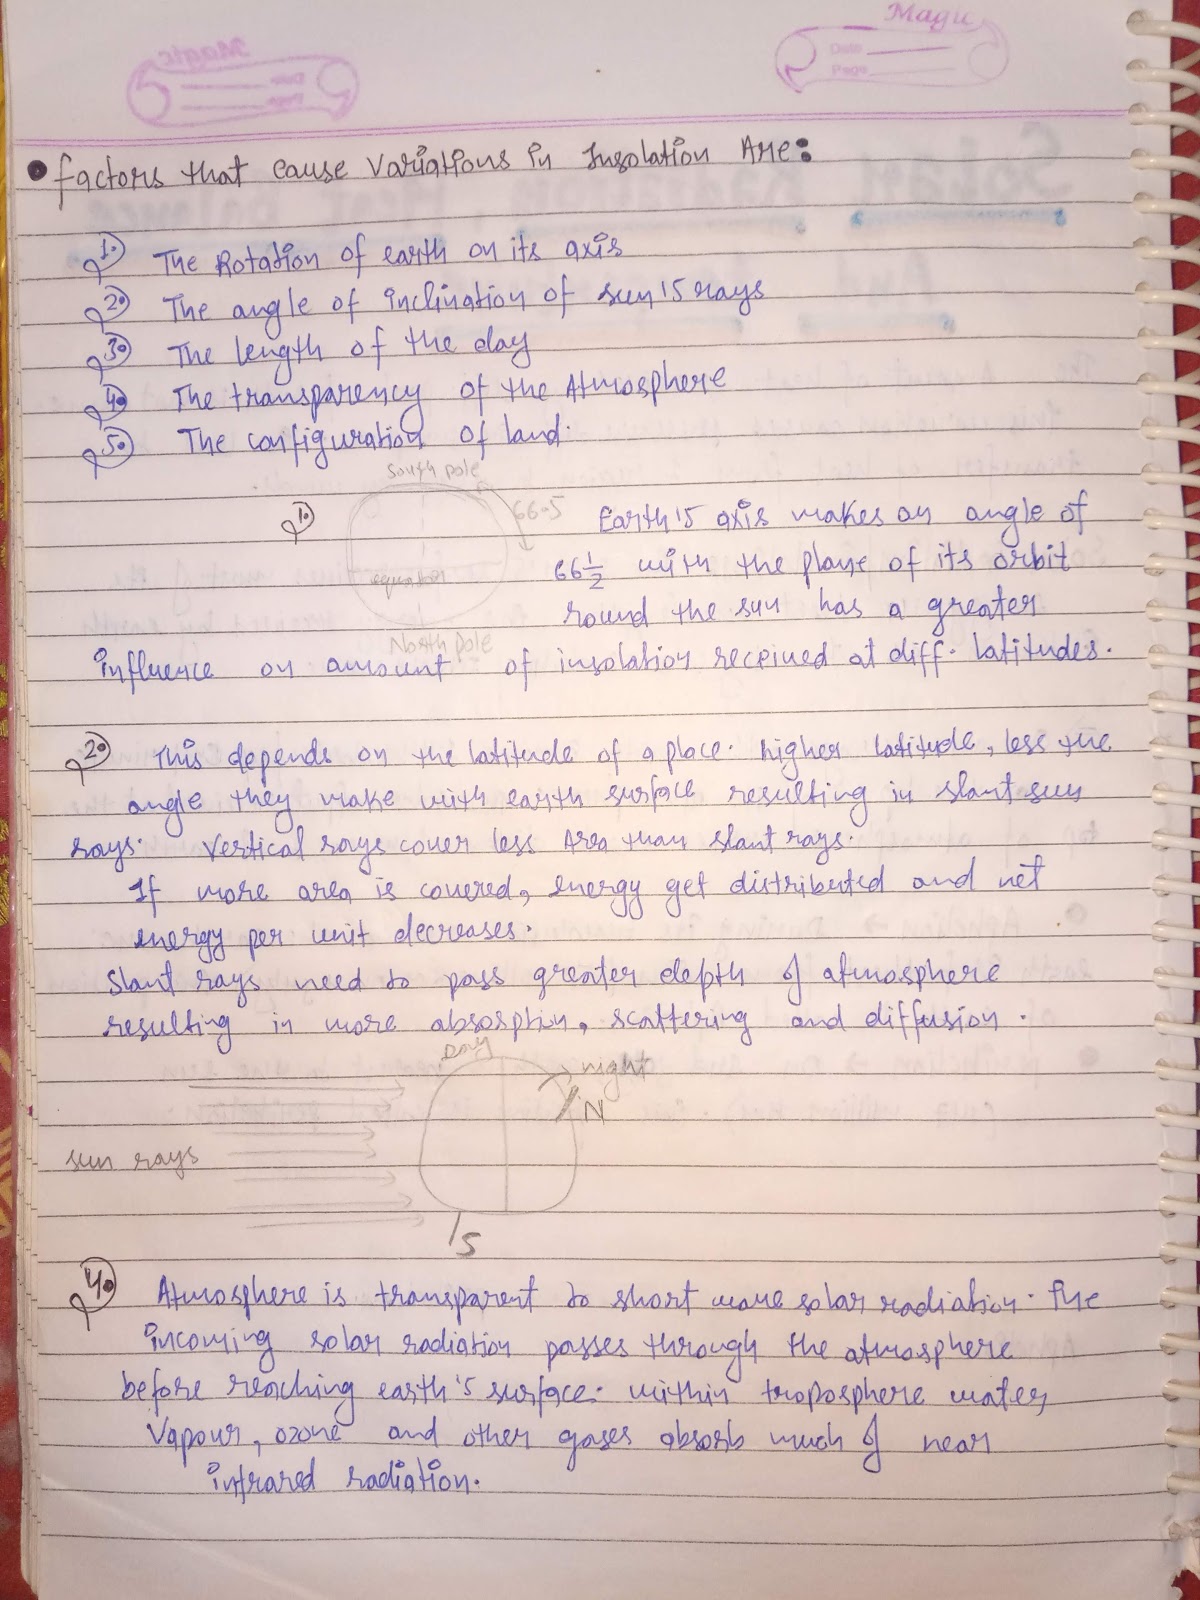 Magic
Date
Page
Magic
Date
Page
• factors that cause variations in Insolation Are:
1. The Rotation of earth on its axis
2. The angle of inclination of sun's rays
3. The length of the day
4. The transparency of the Atmosphere
5. The configuration of land.
South pole
66.5
equator
North pole
1. Earth's axis makes an angle of
66 1/2 with the plane of its orbit
round the sun has a greater
influence on amount of insolation received at diff. latitudes.
2. This depends on the latitude of a place. higher latitude, less the
angle they make with earth surface resulting in slant sun
rays. Vertical rays cover less Area than slant rays.
If more area is covered, energy get distributed and net
energy per unit decreases.
Slant rays need to pass greater depth of atmosphere
resulting in more absorption, scattering and diffusion.
Day
night
N
sun rays
S
4. Atmosphere is transparent to short wave solar radiation. The
incoming solar radiation passes through the atmosphere
before reaching earth's surface. within troposphere water,
Vapour, ozone and other gases absorb much of near
infrared radiation.